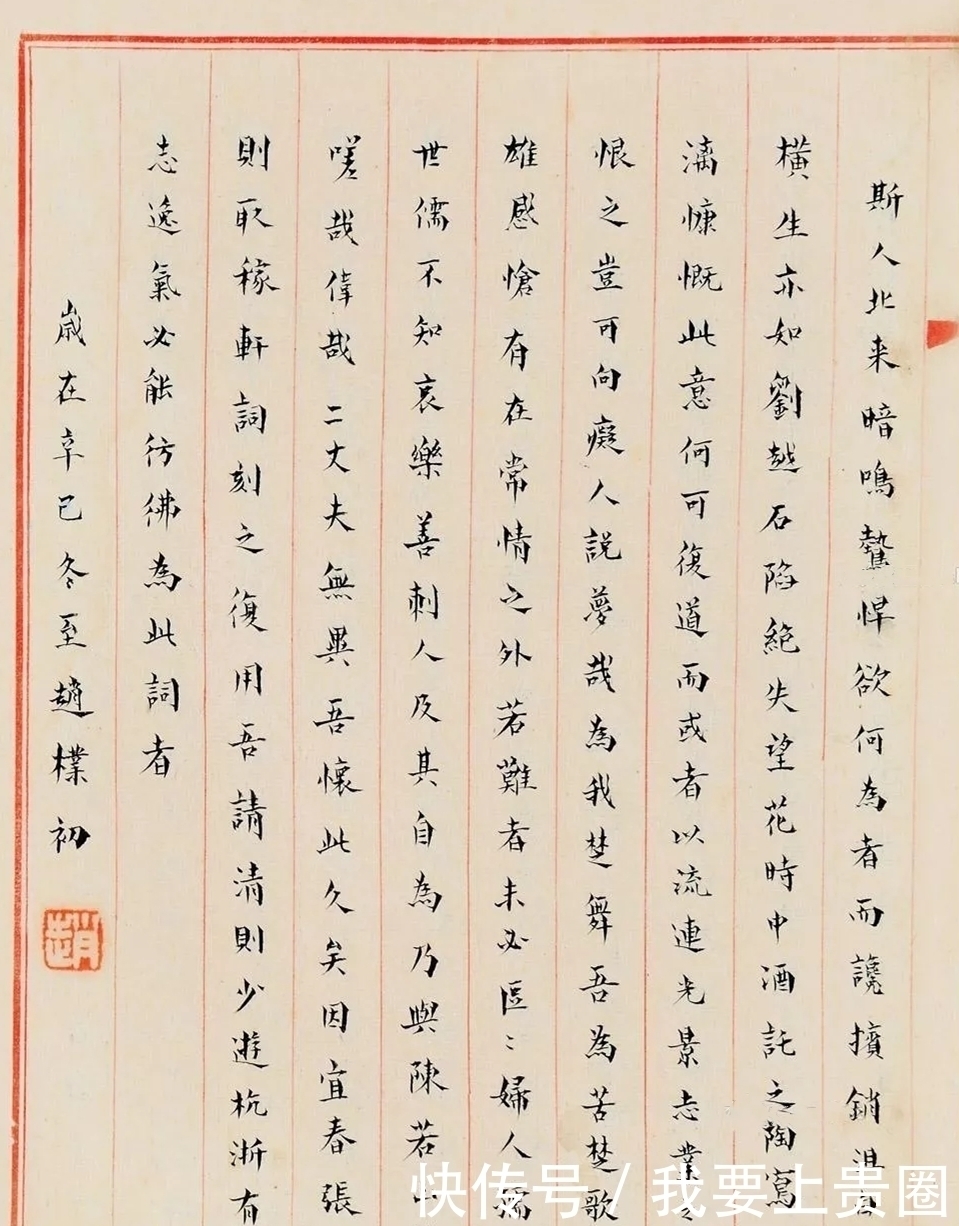 斯人北来暗鳴鷙悍欲何為者而讒擯銷沮
橫生亦如劉越石陷絶失望花時中酒託之陶寫
漓慷慨此意何可復道而或者以流連光景志業
恨之豈可向癡人説夢哉為我楚舞吾為苦楚歌
雄感愴有在常情之外若難者未必區〻婦人
世儒不知哀樂善刺人及其自為乃與陳若
嗟哉偉哉二大夫無異吾懷此久矣因宜春張
則取稼軒詞刻之復用吾請清則少遊杭浙有
志逸氣必能彷彿為此詞者
歲在辛巳冬至趙樸初
趙
快传号/我要上贵圈